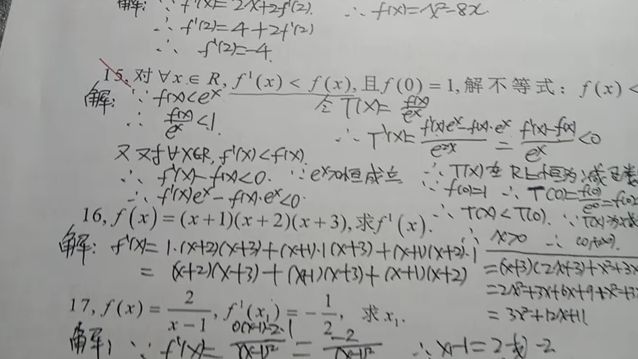 解: ∵ f'(x)= 2x+2f'(2). ∴ f(x)=x²-8x
∴ f'(2)=4+2f'(2)
∴ f'(2)=-4.
15, 对 ∀x∈R, f'(x)<f(x),且f(0)=1,解不等式: f(x)<
解: ∵ f(x)<eˣ 令T(x)= f(x)/eˣ
∴ f(x)/eˣ <1. ∴ T'(x)= f'(x)eˣ-f(x)·eˣ/e²ˣ = f'(x)-f(x)/eˣ <0
又 对∀x∈R, f'(x)<f(x).
∴ f'(x)-f(x)<0. ∵ eˣ>0恒成立 ∴ T(x)在R上恒为减函数
∴ f'(x)eˣ-f(x)·eˣ<0. ∵ f(0)=1 ∴ T(0)= f(0)/e⁰ =f(0)
∴ T(x)<T(0). ∵ T(x)为减
16, f(x)=(x+1)(x+2)(x+3),求f'(x). ∴ x>0 ∴ (0,+∞).
解: f'(x)= 1·(x+2)(x+3)+(x+1)·1(x+3)+(x+1)(x+2)·1
= (x+2)(x+3)+(x+1)(x+3)+(x+1)(x+2) =(x+3)(2x+3)+x²+3x
=2x²+3x+6x+9+x²+3x
= 3x²+12x+11
17, f(x)= 2/x-1, f'(x₁)=-1/2, 求x₁.
解: ∵ f'(x)= 0(x-1)-2·1/(x-1)² = -2/(x-1)² ∴ x-1=2或-2